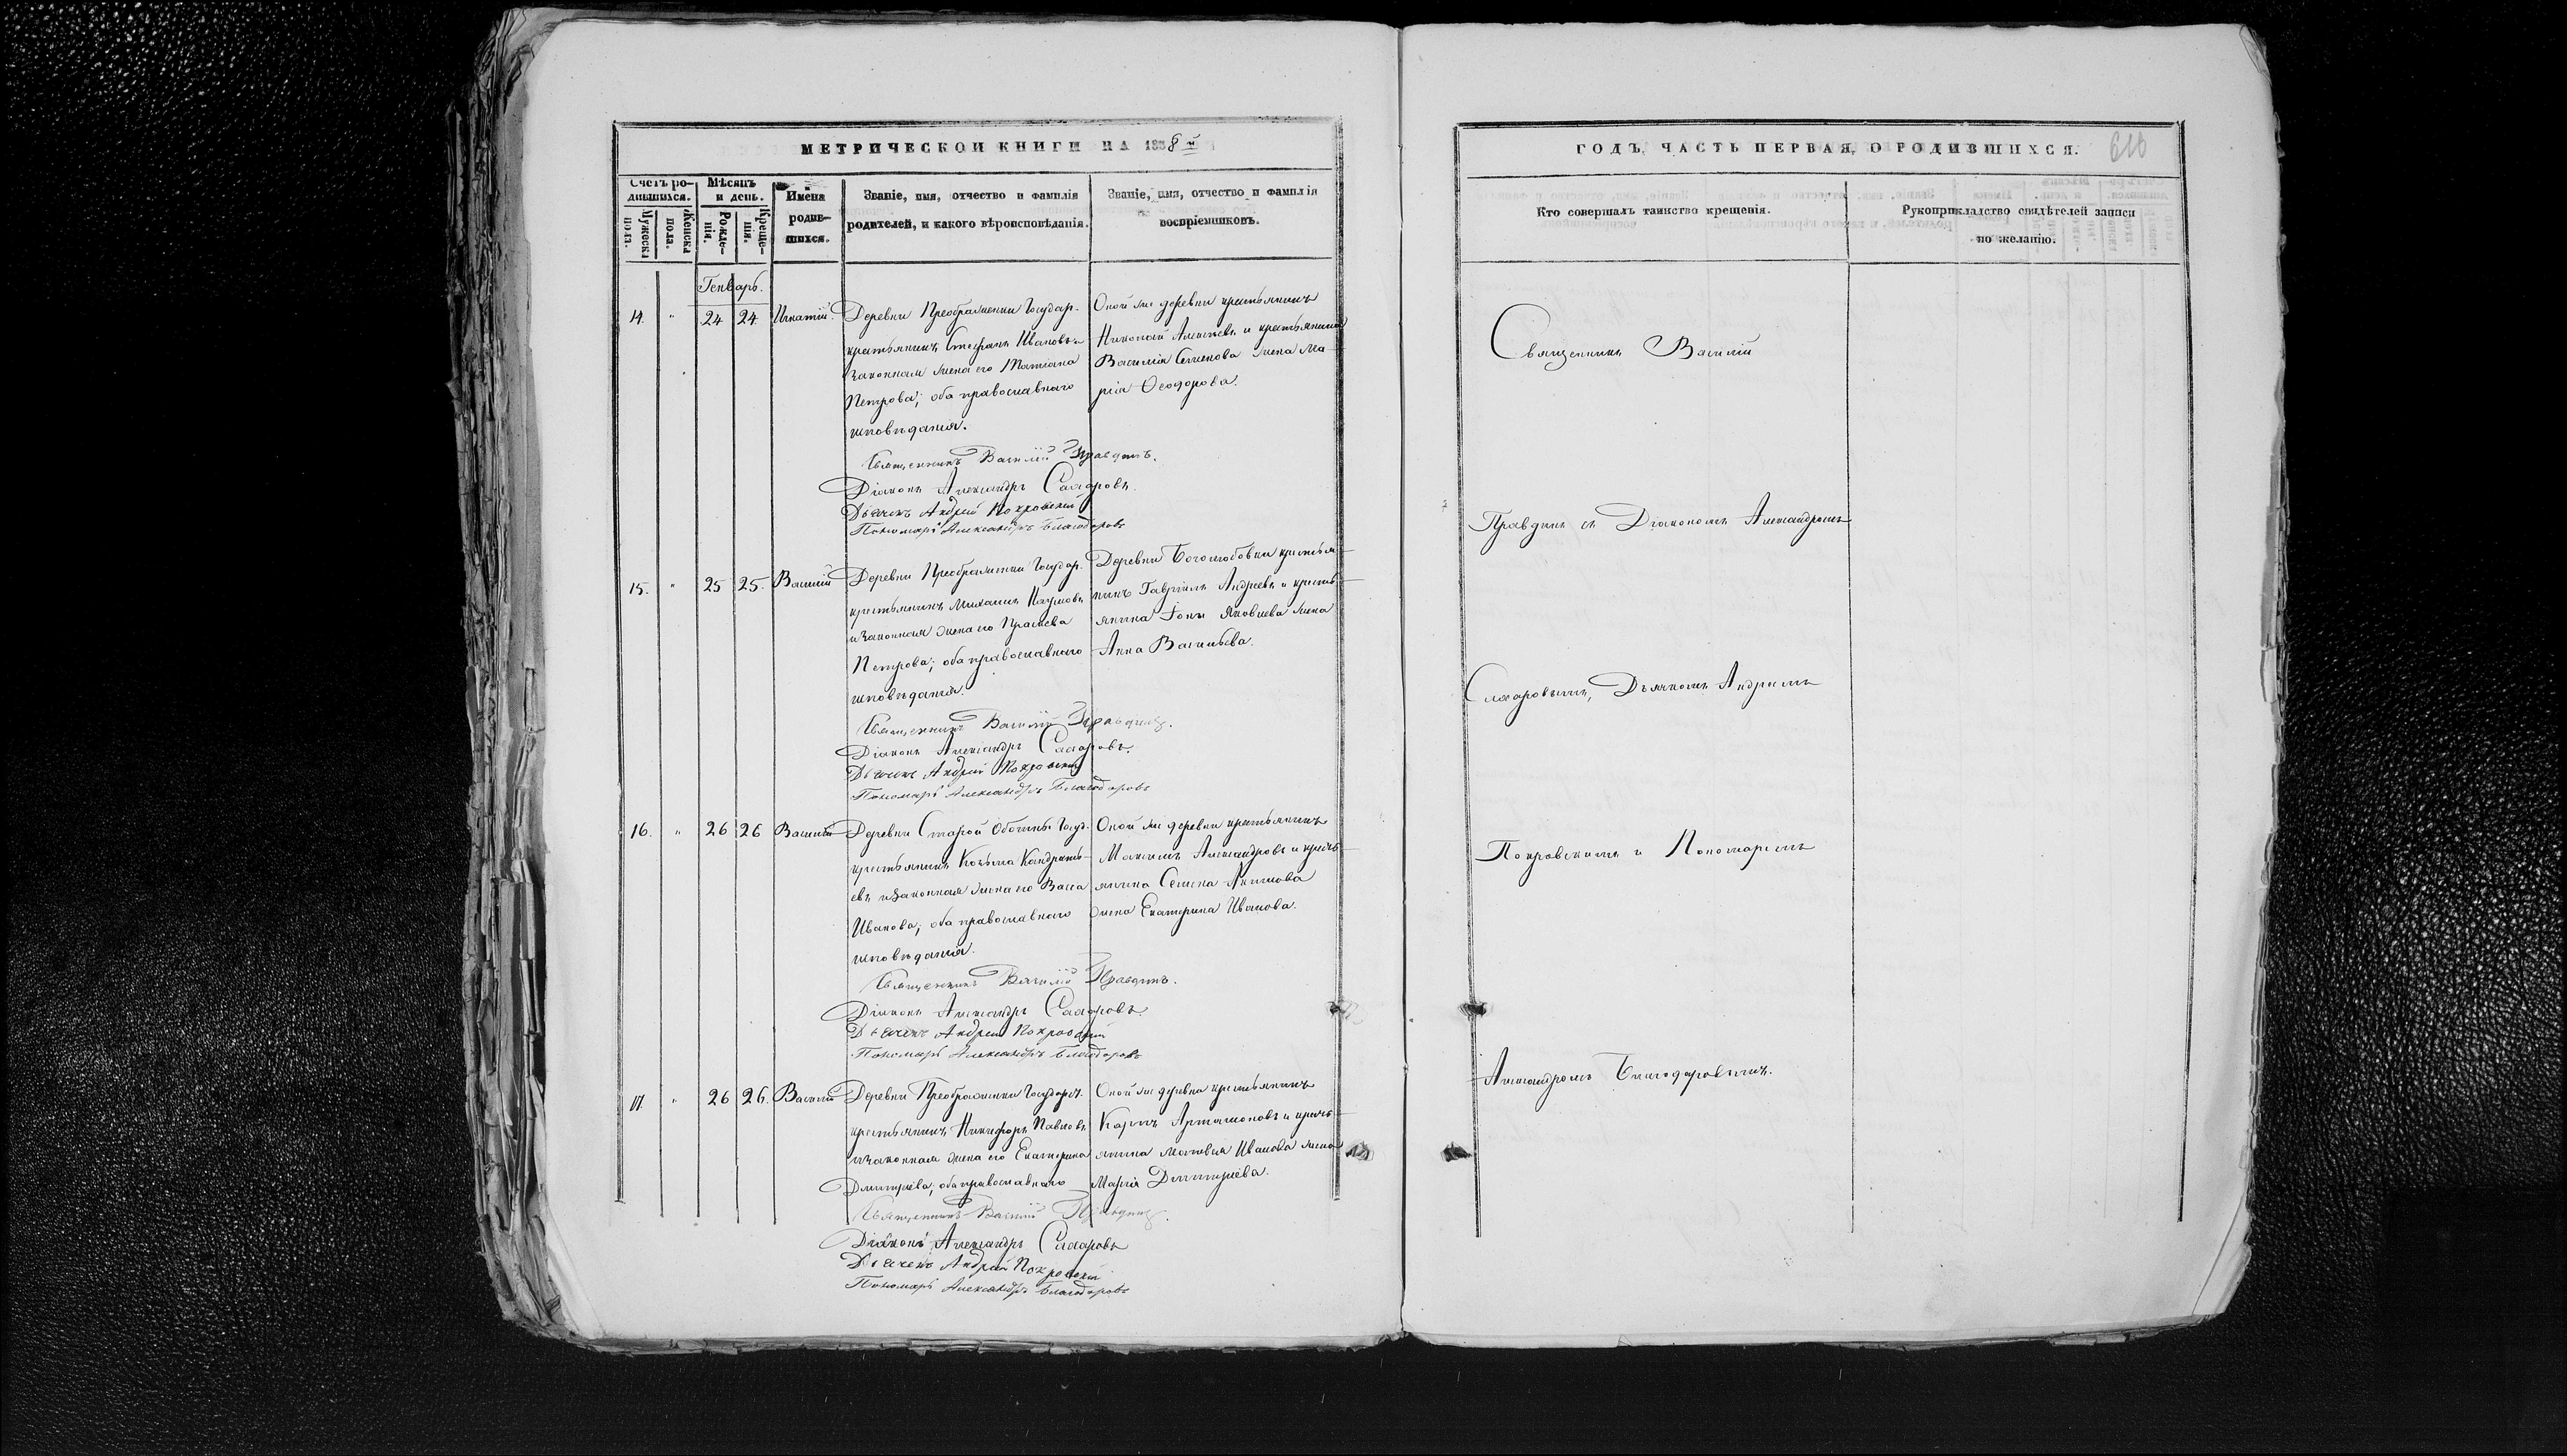 МЕТРИЧЕСКОЙ КНИГИ НА 1838й
Счетъ ро-
дившихся.
Мужеска
пола.
Женска
пола.
Мѣсяцъ
и день.
Рожде-
нія.
Креще-
нія.
Имена
родив-
шихся.
Званіе, имя, отчество и фамилія
родителей, и какого вѣроисповѣданія.
Званіе, имя, отчество и фамилія
воспріемниковъ.
Генварь.
14. " 24 24 Игнатій.
Деревни Преображенки Государ.
крестьянинъ Стефанъ Ивановъ и
законная жена его Татіана
Петрова; оба православнаго
исповѣданія.
Оной же деревни крестьянинъ
Николай Алексѣевъ и крестьянина
Василія Семенова жена Ма-
рія Ѳеодорова.
Священникъ Василій Правдинъ.
Діаконъ Александръ Сахаровъ.
Дьячекъ Андрей Покровскій
Пономарь Александръ Благодаровъ
15. " 25 25. Василій
Деревни Преображенки Государ.
крестьянинъ Михаилъ Наумовъ
и законная жена его Праскева
Петрова; оба православнаго
исповѣданія.
Деревни Боголюбовки крестья-
нинъ Гавріилъ Андреевъ и кресть-
янина Іоны Яковлева жена
Анна Васильева.
Священникъ Василій Правдинъ.
Діаконъ Александръ Сахаровъ.
Дьячекъ Андрей Покровскій
Пономарь Александръ Благодаровъ
16. " 26 26 Василій
Деревни Старой Госуд.
крестьянинъ Козьма Кандрать-
евъ и законная жена его Васса
Иванова; оба православнаго
исповѣданія.
Оной же деревни крестьянинъ
Максимъ Александровъ и кресть-
янина Семена Акимова
жена Екатерина Иванова.
Священникъ Василій Правдинъ.
Діаконъ Александръ Сахаровъ.
Дьячекъ Андрей Покровскій
Пономарь Александръ Благодаровъ
17. " 26 26. Василій
Деревни Преображенки Государст.
крестьянинъ Никифоръ Павловъ
и законная жена его Екатерина
Дмитріева; оба православнаго
Оной же деревни крестьянинъ
Карпъ Артамоновъ и кресть-
янина Матвея Иванова жена
Марія Дмитріева.
Священникъ Василій Правдинъ.
Діаконъ Александръ Сахаровъ
Дьячекъ Андрей Покровскій
Пономарь Александръ Благодаровъ
ГОДЪ, ЧАСТЬ ПЕРВАЯ, О РОДИВШИХСЯ.
610
Кто совершалъ таинство крещенія.
Рукоприкладство свидѣтелей записи
по желанію.
Священникъ Василій
Правдинъ съ Діакономъ Александромъ
Сахаровымъ, Дьячкомъ Андреемъ
Покровскимъ и Пономаремъ
Александромъ Благодаровымъ.